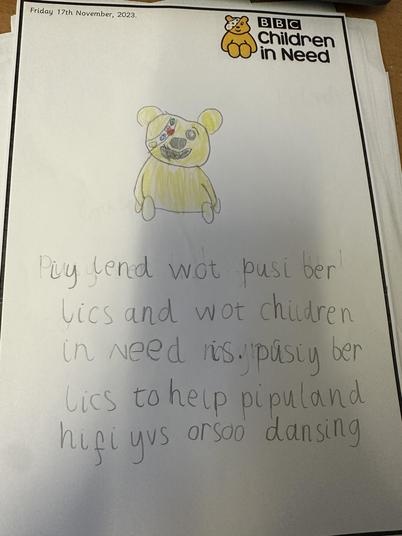 Friday 17th November, 2023.
BBC
Children
in Need
lend wot pusi ber
lics and wot children
in Need is. pusiy ber
lics to help pipul and
hifi yvs orsoo dansing